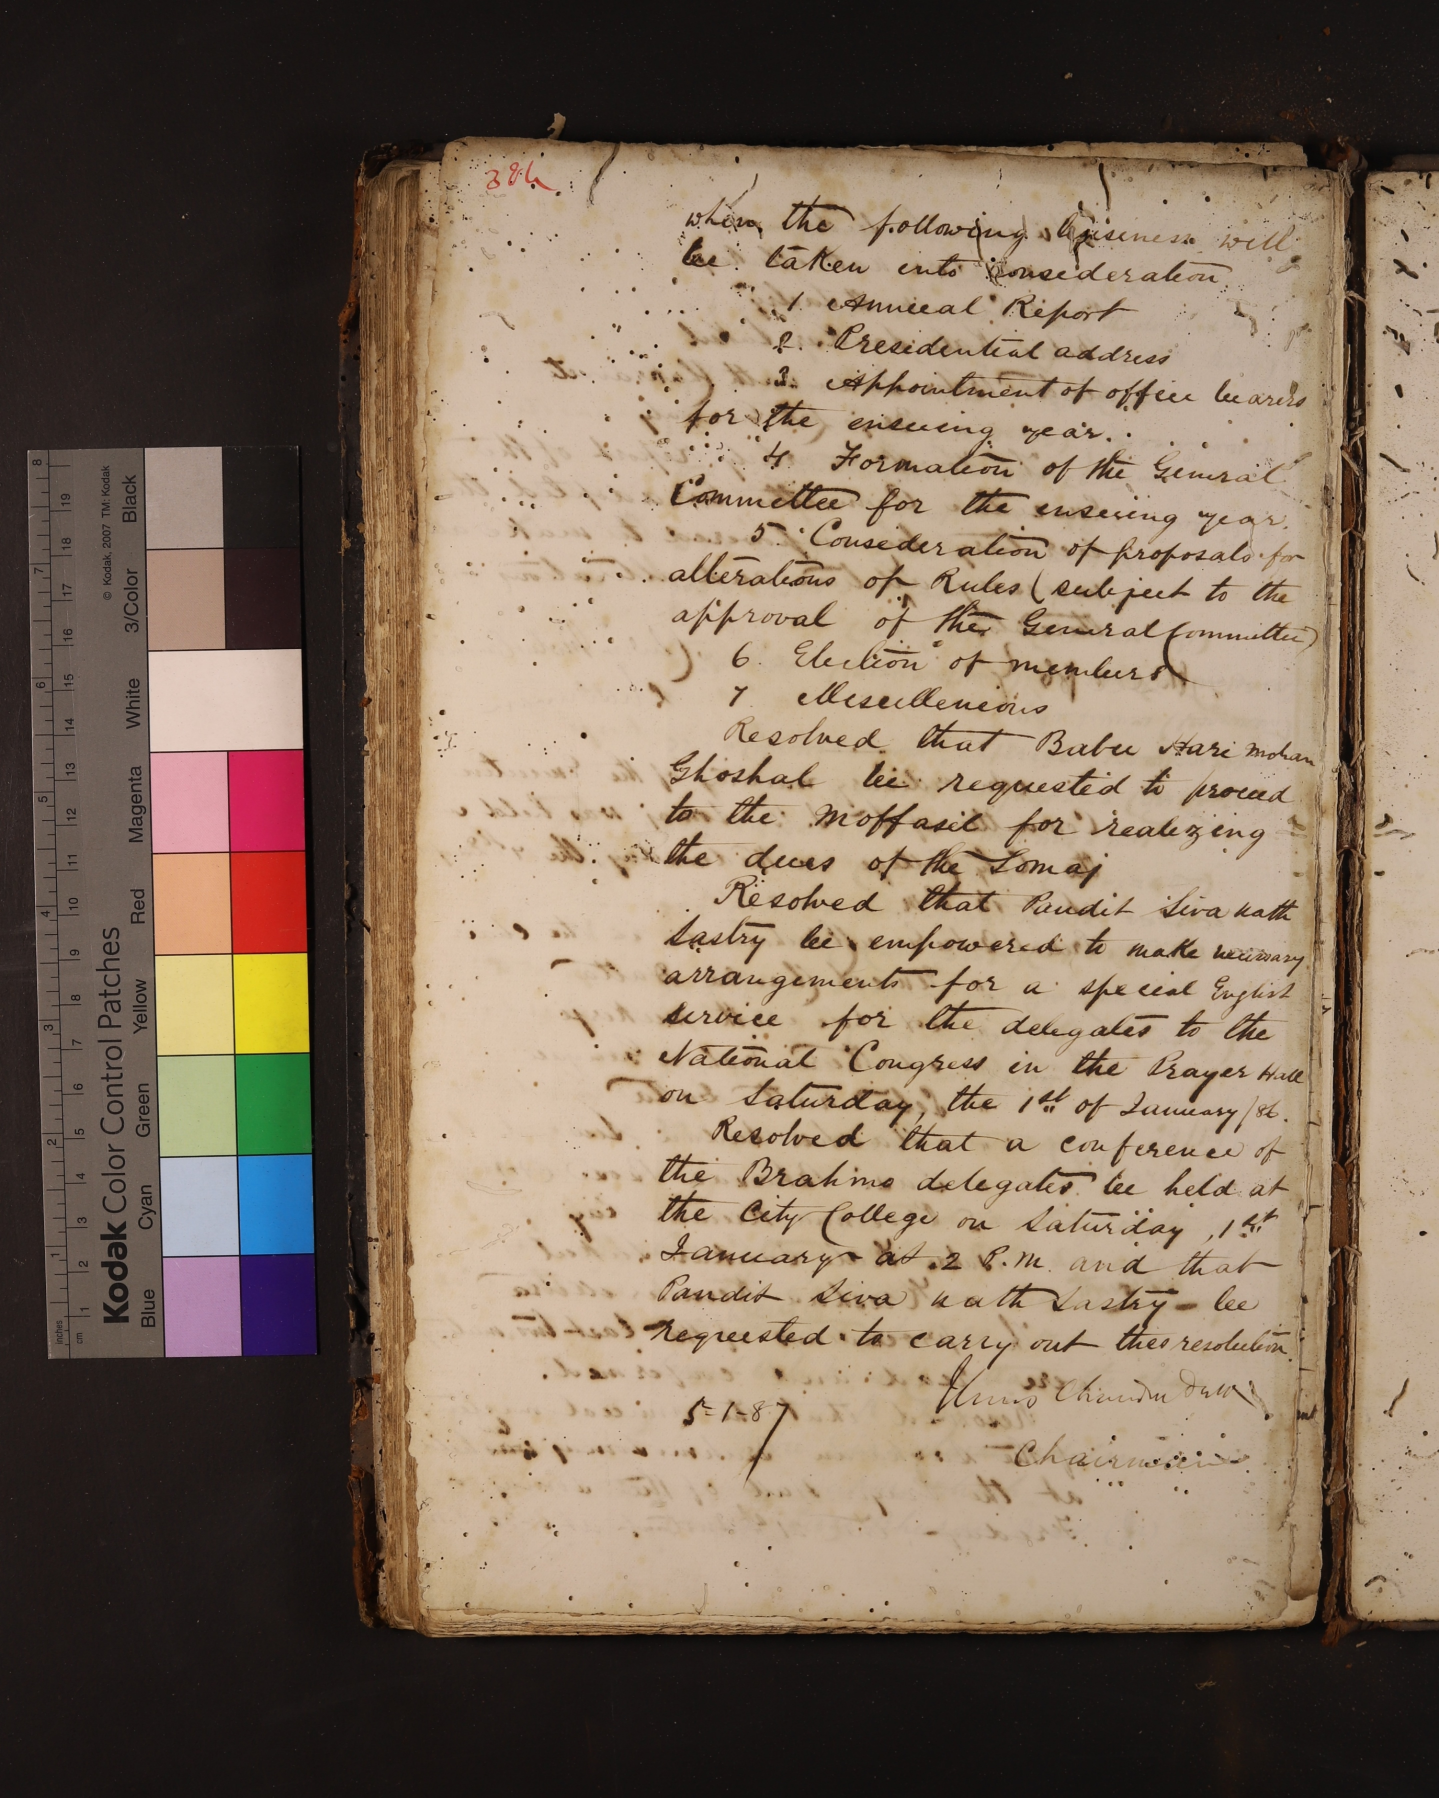 386
when the following business will
be taken into consideration
1. Annual Report
2. Presidential address
3. Appointment of office bearers
for the ensuing year.
4 Formation of the General
Committee for the ensuing year.
5 Consideration of proposals for
alterations of Rules (subject to the
approval of the General Committee)
6. Election of members
7 Miscellenious
Resolved that Babu Hari Mohan
Ghoshal be requested to proceed
to the Moffasil for realizing
the dues of the Somaj
Resolved that Pandit Siva nath
Sastry be empowered to make necessary
arrangements for a special English
service for the delegates to the
National Congress in the Prayer Hall
on Saturday, the 1st of January /86.
Resolved that a conference of
the Brahmo delegates be held at
the City College on Saturday, 1st
January at 2 P.M. and that
Pandit Siva nath Sastry be
requested to carry out this resolution.
Chandra Dutt
5-1-87
Chairman
Kodak Color Control Patches
© Kodak, 2007 TM: Kodak
Blue Cyan Green Yellow Red Magenta White 3/Color Black
inches 1 2 3 4 5 6 7 8
cm 1 2 3 4 5 6 7 8 9 10 11 12 13 14 15 16 17 18 19